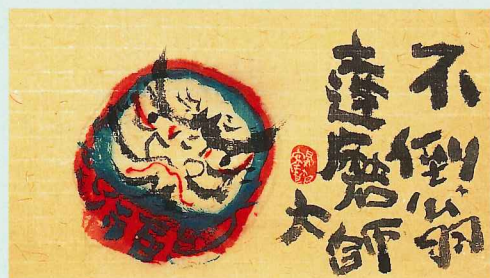 不倒翁
達磨大師